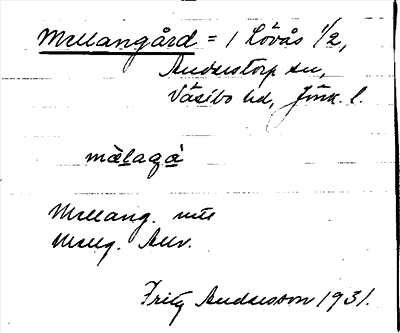 Mellangård = 1 Lövås 1/2,
Anderstorp sn,
Västbo hd, Jönk. l.
mälaga
Mellang.
Mellg. Anv.
Fritz Andersson 1931.